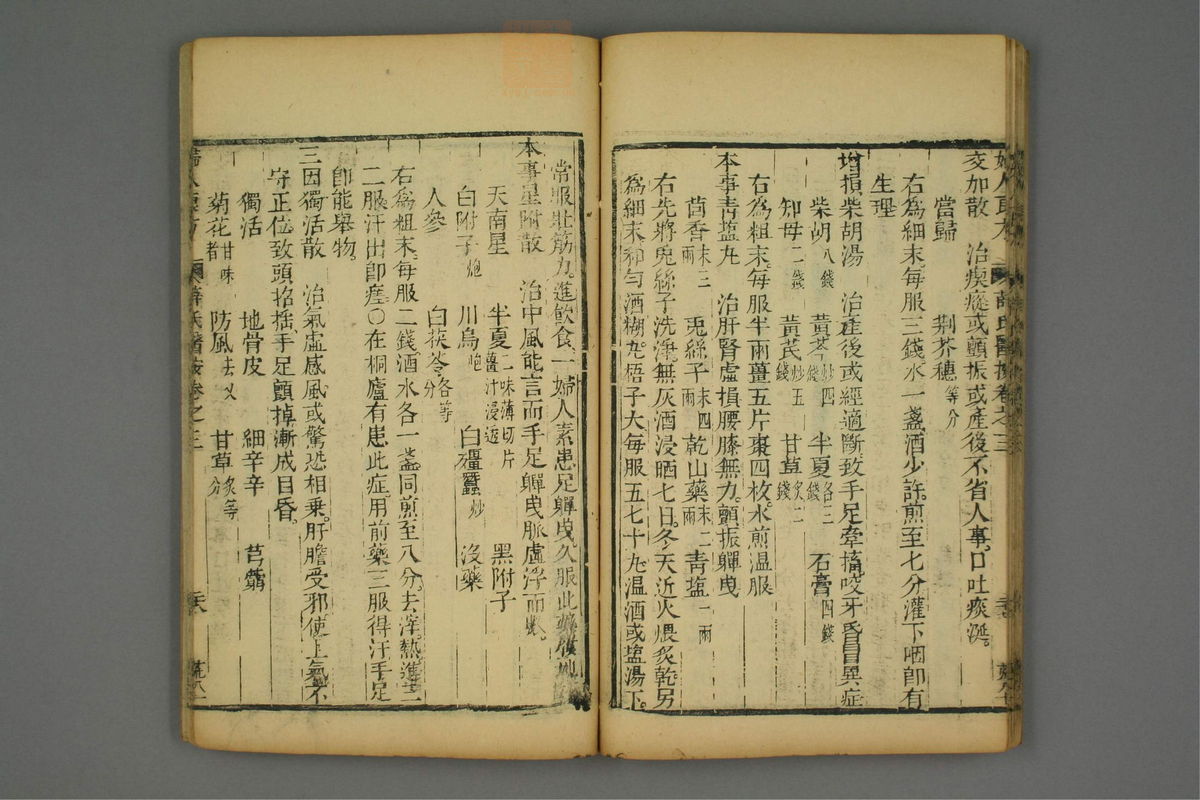 婦人良方 薛氏醫按卷之三
交加散 治瘈瘲或顫振或產後不省人事口吐痰涎。
當歸 荆芥穗等分
右爲細末每服三錢水一盞酒少許煎至七分灌下咽卽有
生理
增損柴胡湯 治產後或經適斷致手足牽搐咬牙昏冒異症
柴胡八錢 黃芩炒四錢 半夏各三錢 石膏四錢
知母二錢 黃芪炒五錢 甘草炙二錢
右爲粗末每服半兩薑五片棗四枚水煎温服
本事青塩丸 治肝腎虛損腰膝無力顫振軃曳
茴香末三兩 兎絲子末四兩 乾山藥末二兩 青塩一兩
右先將兎絲子洗淨無灰酒浸晒七日冬天近火煨炙乾另
爲細末和勻酒糊丸梧子大每服五七十丸温酒或塩湯下。
常服壯筋力進飲食一婦人素患足軃曳久服此
本事星附散 治中風能言而手足軃曳脈虛浮而
天南星 半夏二味薄切片薑汁浸透 黑附子
白附子炮 川烏炮 白殭蠶炒 沒藥
人參 白茯苓各等分
右爲粗末每服二錢酒水各一盞同煎至八分去滓熱進二
二服汗出卽瘥〇在桐廬有患此症用前藥三服得汗手足
卽能舉物。
三因獨活散 治氣虛感風或驚恐相乗肝膽受邪使上氣不
守正位致頭招搖手足顫掉漸成目昏。
獨活 地骨皮 細辛 芎藭
菊花甘味者 防風去乂 甘草炙等分
薛氏醫按卷之三